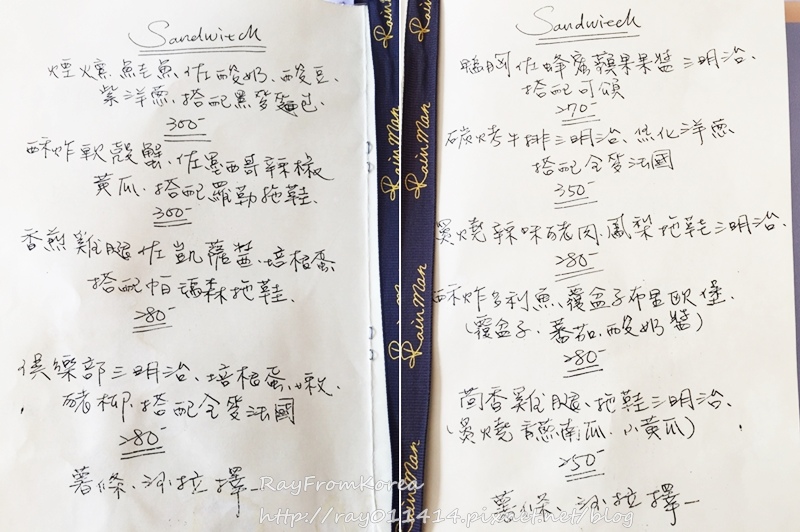 Sandwitch
煙燻鮭魚佐酸奶、酸豆、
紫洋蔥、搭配黑麥麵包
300-
酥炸軟殼蟹、佐墨西哥辣椒
黃瓜、搭配羅勒拖鞋、
300-
香煎雞腿佐凱薩醬、培根蛋
搭配帕瑪森拖鞋、
280-
俱樂部三明治、培根蛋、
豬柳、搭配全麥法國
280-
薯條、沙拉擇一
Sandwitch
鴨胸佐蜂蜜蘋果果醬三明治、
搭配可頌
270-
碳烤牛排三明治、焦化洋蔥、
搭配全麥法國
350-
炙燒辣味豬肉、鳳梨拖鞋三明治、
280-
酥炸多利魚、覆盆子布里歐堡、
(覆盆子、蕃茄、酸奶醬)
280-
茴香雞腿、拖鞋三明治、
(炙燒南瓜、小黃瓜)
250-
薯條、沙拉擇一
Rain Man
Rain Man
Rain Man
Rain Man
Rain Man
RayFromKorea
http://ray011414.pixnet.net/blog